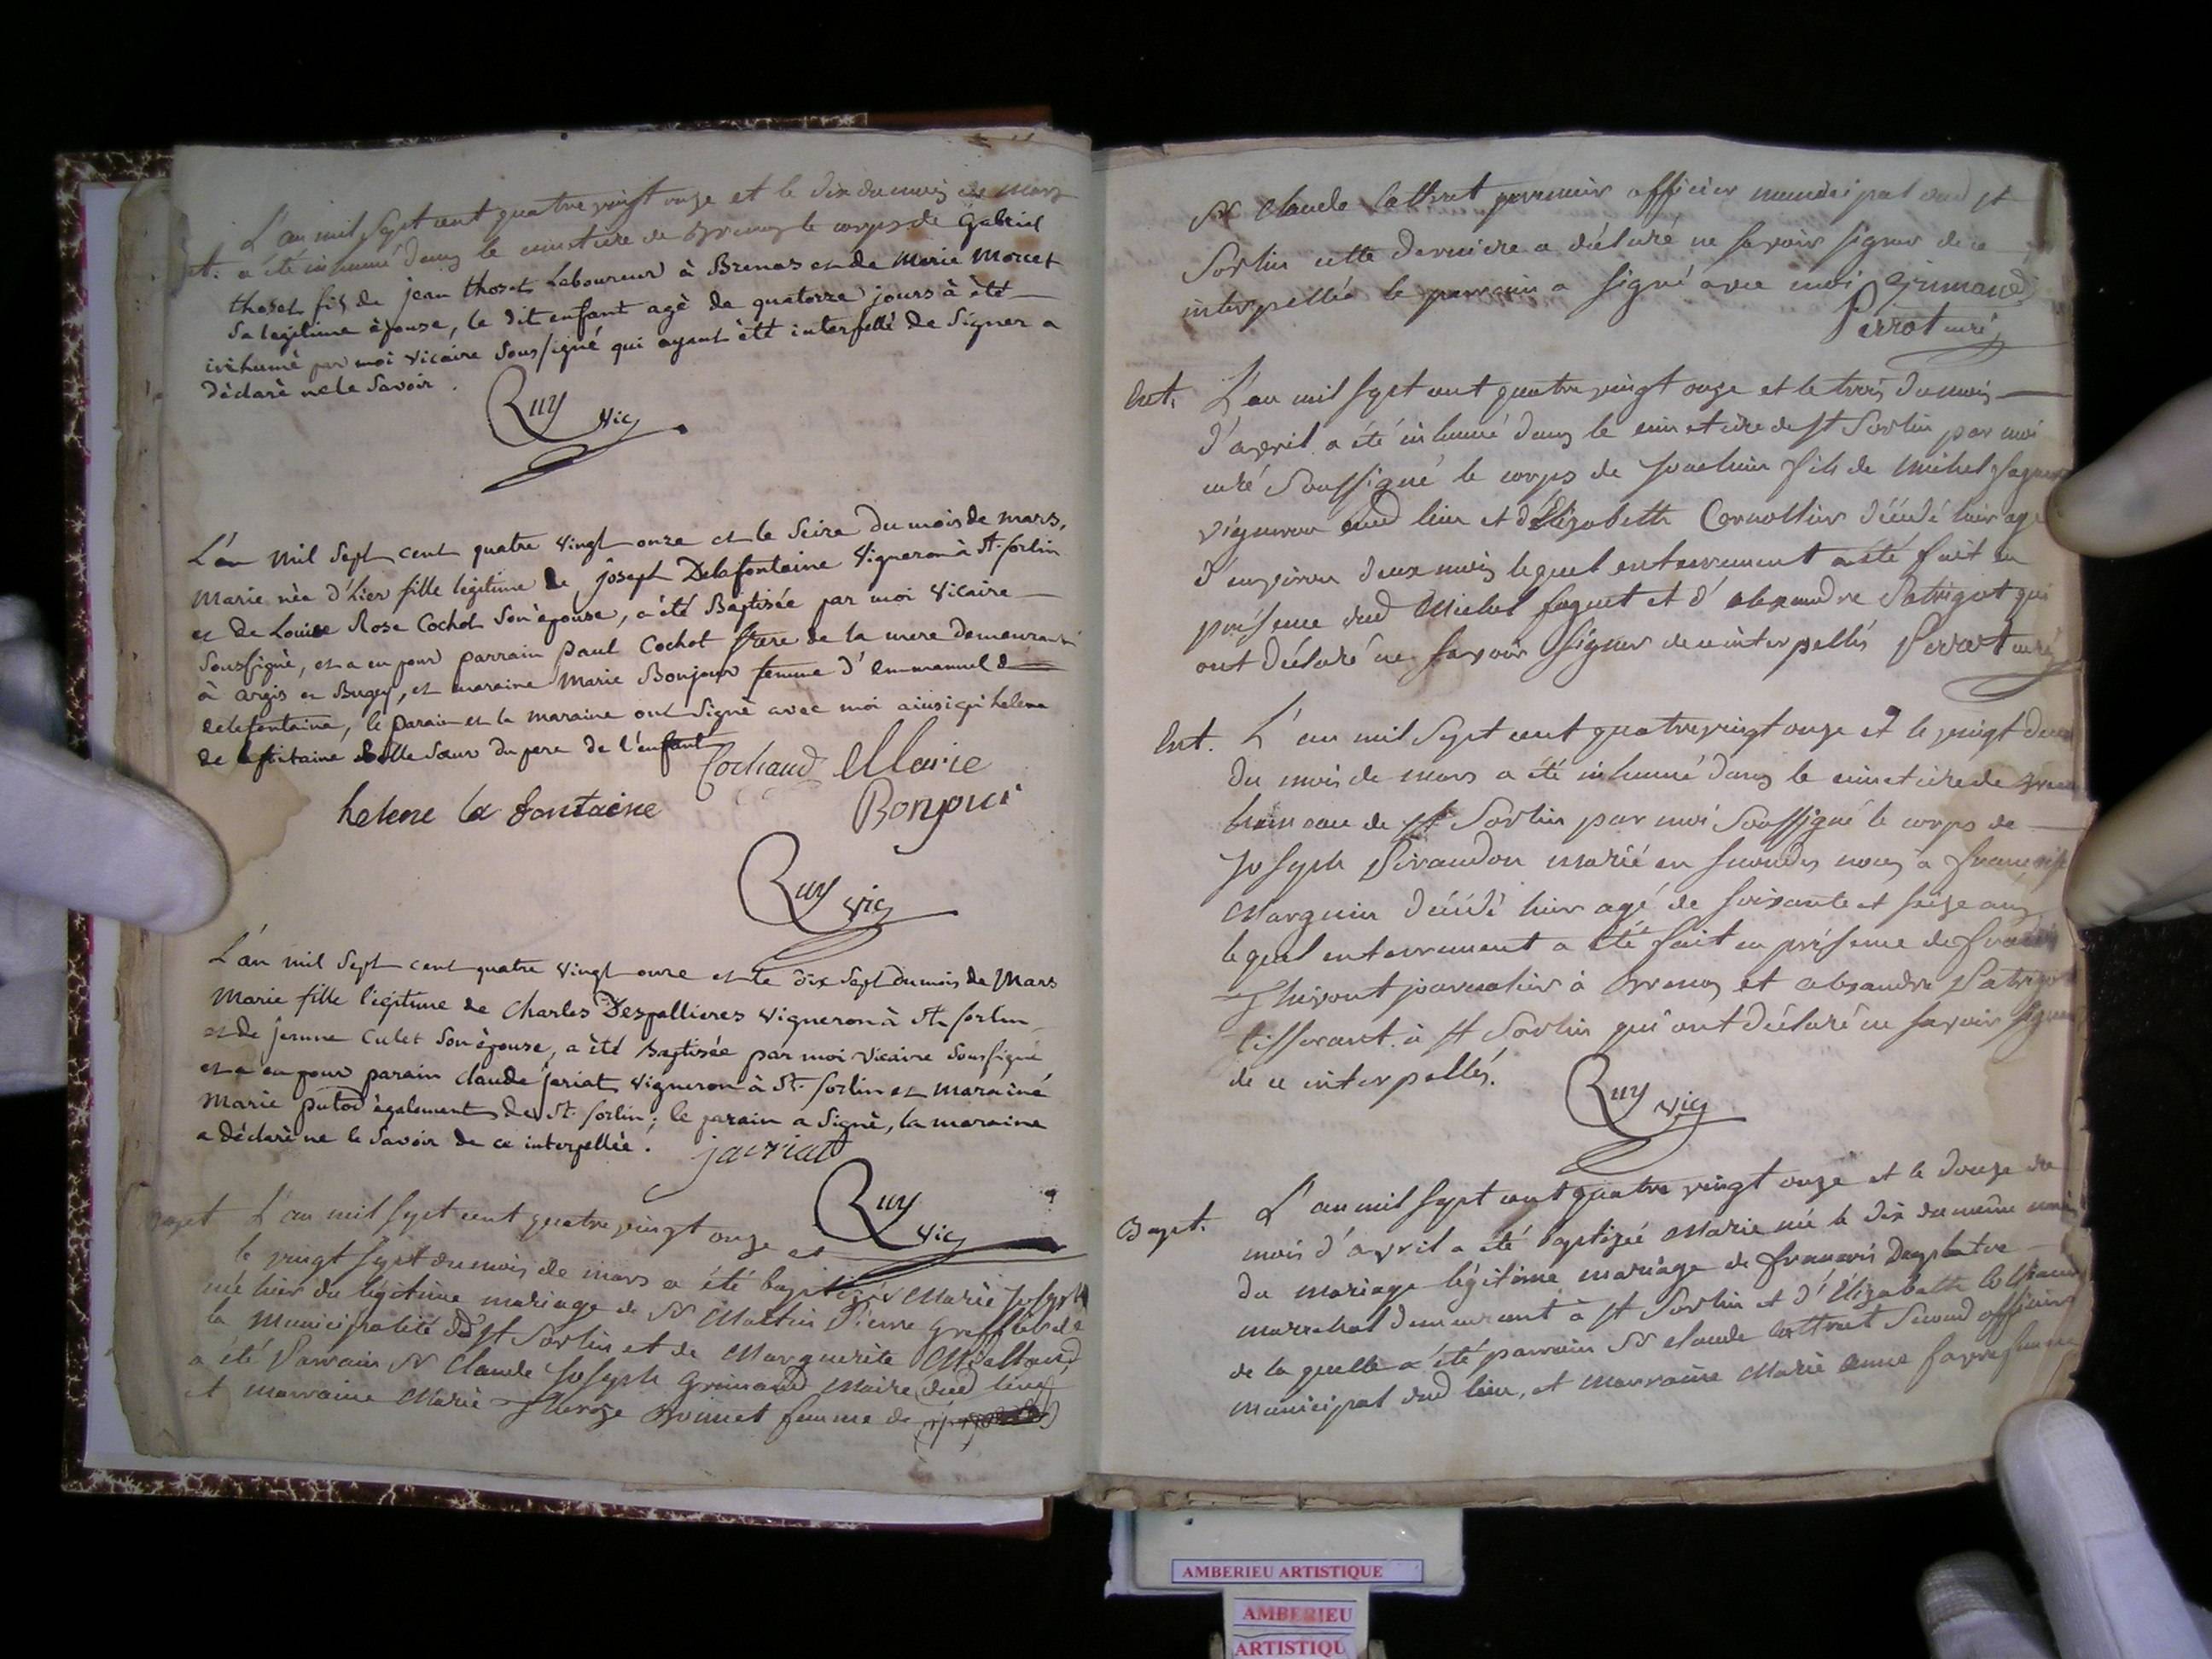 L'an mil sept cent quatre vingt onze et le dix du mois de mars
a été inhumé dans le cimetiere de Brenas le corps de Gabriel
thoset fils de jean thoset Laboureur à Brenas et de Marie Morcet
Sa legitime èpouse, le dit enfant agè de quatorze jours à ètè
inhumè par moi Vicaire Soussigné qui ayant ètè interpellè de Signer a
dèclarè ne le Savoir.
Ruy Vic
L'an Mil Sept cent quatre Vingt onze et le Seize du mois de mars,
Marie nèe d'hier fille legitime de joseph Delafontaine Vigneron à St. sorlin
et de Louise Rose Cochot Son èpouse, a été Baptisée par moi Vicaire
Soussignè, et a eu pour parrain paul Cochot frere de la mere demeurant
à argis en Bugey, et maraine Marie Bonjour femme d'emmanuel
delafontaine, le parain et la maraine ont Signè avec moi ainsi qu'helene
de la fontaine belle Sœur du pere de l'enfant
Cochaud Marie
helene la fontaine Bonjour
Ruy Vic
L'an mil Sept cent quatre Vingt onze et le dix Sept du mois de Mars
Marie fille lègitime de Charles Despallieres Vigneron à St. sorlin
et de jeanne Culet Son èpouse, a ètè Baptisée par moi Vicaire Soussigné
et a eu pour parain Claude jariat Vigneron à St. sorlin et maraine
Marie putod ègalement de St. sorlin; le parain a Signè, la maraine
a dèclarè ne le Savoir de ce interpellèe. jacriat
Ruy Vic
Bapt L'an mil sept cent quatre vingt onze et
le vingt sept du mois de mars a été baptisée Marie Joseph
née hier du légitime mariage de Sr Martin Pierre greff de
la Municipalité de St Sorlin et de Marguerite
a été Parrain Sr Claude Joseph Grimaud Maire dud lieu
et marraine Marie Therese Bonnet femme de
Sr Claude Cottret premier officier municipal dud St
Sorlin cette derniere a déclaré ne savoir signer de ce
interpellée le parrain a signé avec moi Grimaud
Perrot curé
Ent. L'an mil sept cent quatre vingt onze et le trois du mois
d'avril a été inhumé dans le cimetiere de St Sorlin par moi
curé Soussigné le corps de Joachim fils de Michel faguet
vigneron dud lieu et d'Elizabeth Cornollier décédé hier agé
d'environ deux mois lequel enterrement a été fait en
présence dud Michel faguet et d'alexandre Patrigot qui
ont déclaré ne savoir signer de ce interpellés Perrot curé
Ent. L'an mil sept cent quatre vingt onze et le vingt
du mois de mars a été inhumé dans le cimetiere de
hameau de St Sorlin par moi Soussigné le corps de
Joseph Pivaudon marié en secondes noces a francoise
Marguin décédé hier agé de soixante et seize ans
lequel enterrement a été fait en présence de
Thivont journalier à Brenas et alexandre Patrigot
tisserant à St Sorlin qui ont déclaré ne savoir signer
de ce interpellés.
Ruy Vic
Bapt. L'an mil sept cent quatre vingt onze et le douze du
mois d'avril a été baptizée Marie née le dix du même mois
du mariage légitime mariage de francois Deplatre
marechal demeurant à St Sorlin et d'Elizabeth
de la quelle a été parrain Sr claude Cottret Second officier
municipal dud lieu, et marraine Marie anne favre femme
AMBERIEU ARTISTIQUE
AMBERIEU
ARTISTIQU